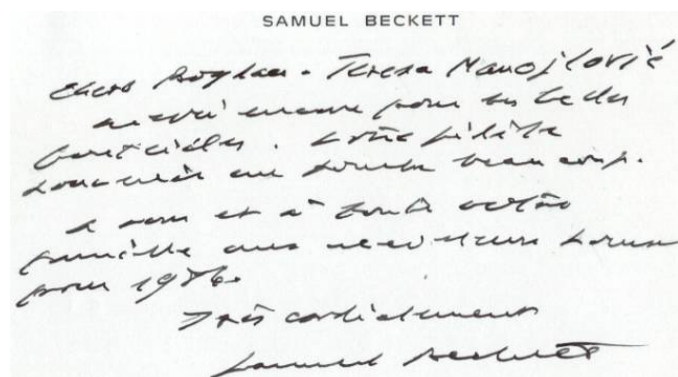 SAMUEL BECKETT
Chers Bogdan - Teresa Manojlović
merci encore pour les belles
bouteilles. Votre fidèle
souvenir me touche beaucoup.
A vous et à toute votre
famille mes meilleurs voeux
pour 1986.
Très cordialement
Samuel Beckett